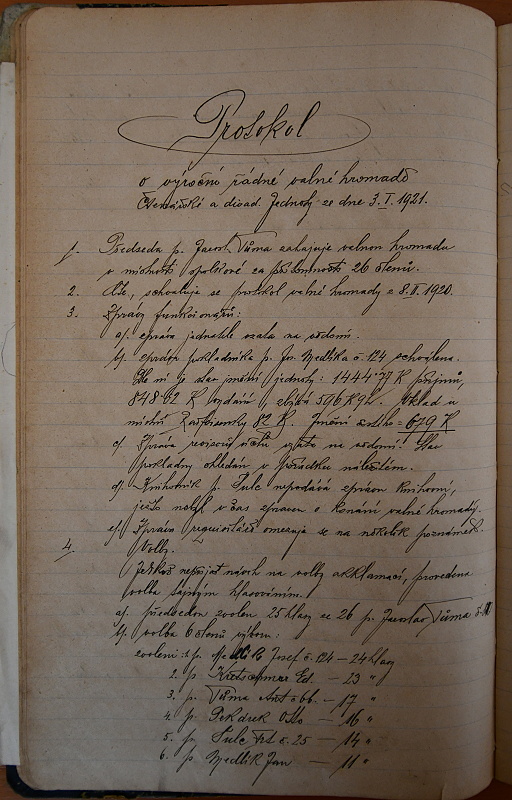 Protokol
o výroční řádné valné hromadě
Čtenářské a divad. Jednoty ze dne 3. I. 1921.
1. Předseda p. Jarosl. Tůma zahajuje valnou hromadu
v místnosti spolkové za přítomnosti 26 členů.
2. Čte, schvaluje se protokol valné hromady z 8. II. 1920.
3. Zprávy funkcionářů:
a). zpráva jednatele vzata na vědomí.
b). zpráva pokladníka p. Jos. Medlíka č. 124 schválena.
Dle ní je stav jednoty: 1444·77 K příjmů,
848·62 K vydání, zbývá 596 K 9 h. Vklad u
82 K. Jmění = 679 K
c). Zpráva revisorů účtů vzata na vědomí. Stav
pokladny shledán v pořádku náležitém.
d). Knihovník p. Šulc nepodává zprávu knihovní,
ježto nebyl včas zpraven o konání valné hromady.
e). Zpráva requisitáře omezuje se na několik poznámek.
4. Volby.
Ježto nepřijat návrh na volby akklamací, provedena
volba tajným hlasováním.
a). předsedou zvolen 25 hlasy ze 26 p. Jaroslav Tůma
b). volba 6 členů výboru:
zvoleni: 1. p. Medlík Josef č. 124 – 24 hlasy
2. p. Kretschmer Ed. – 23 "
3. p. Tůma Ant. č. 66. – 17 "
4. p. Otto – 16 "
5. p. Šulc č. 25 – 14 "
6. p. Medlík Jan – 11 "